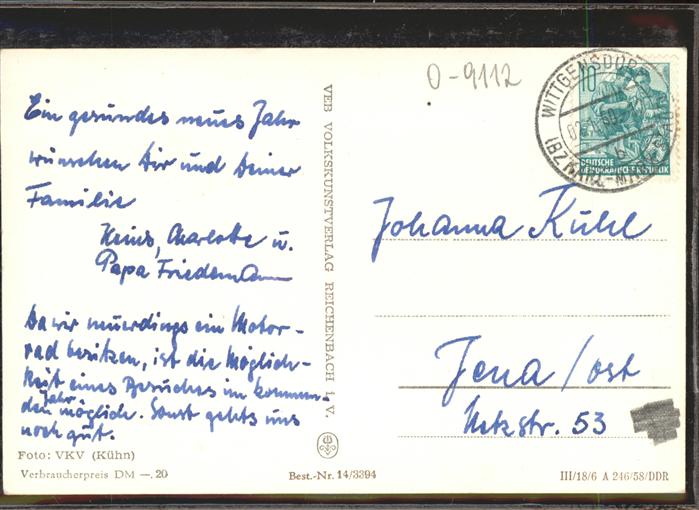 O-9112
Ein gesundes neues Jahr
wünschen Dir und Deiner
Familie
Heinz, Charlotte u.
Papa Friedemann
Da wir neuerdings ein Motor-
rad besitzen, ist die Möglich-
keit eines Besuches im kommen-
den Jahr möglich. Sonst gehts uns
noch gut.
Foto: VKV (Kühn)
Verbraucherpreis DM —.20
VEB VOLKSKUNSTVERLAG REICHENBACH i. V.
Best.-Nr. 14/3394
WITTGENSDORF
(BZ KARL-MARX-STADT)
10
DEUTSCHE
DEMOKRATISCHE REPUBLIK
Johanna Kühl
Jena/ost
53
III/18/6 A 246/58/DDR